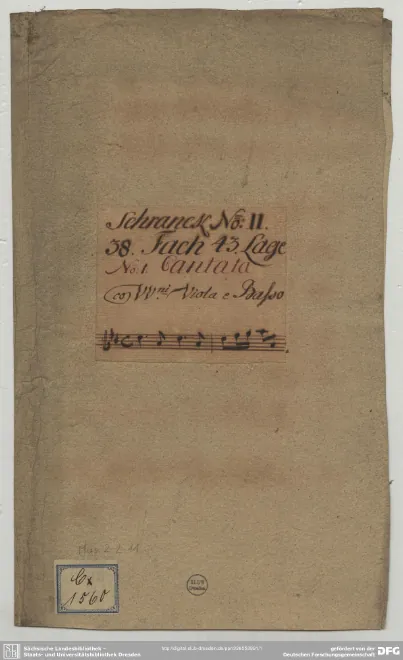 Schranck No: II.
38. Fach 43. Lage
No. 1 Cantata
co VVni Viola e Basso
Cx
1560
SLUB
Sächsische Landesbibliothek –
Staats- und Universitätsbibliothek Dresden
gefördert von der
Deutschen Forschungsgemeinschaft
DFG